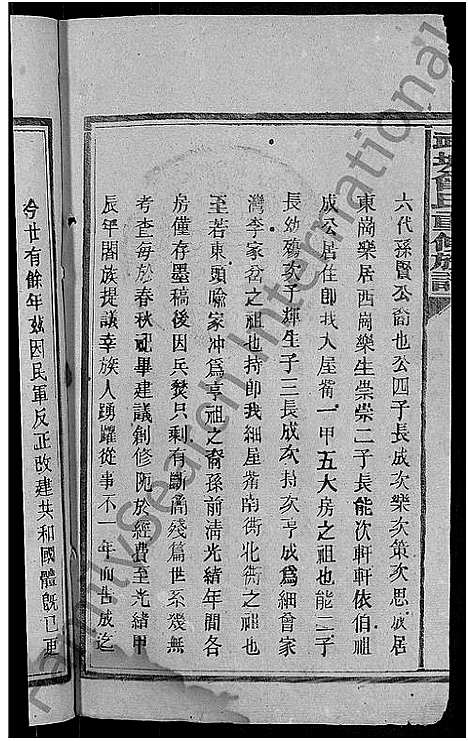 六代孫賢公裔也公四子長成次樂次策次思成居
東崗樂居西崗樂生崇崇二子長能次軒軒依伯祖
成公居住即我大屋衕一甲五大房之祖也能二子
長幼殤次子輝生子三長成次持次亨成為細曾家
灣李家岔之祖也持即我細屋衕南衖北衖之祖也
至若東頭喻家冲為亨祖之裔孫前清光緒年間各
房僅存墨稿後因兵焚只剩有斷簡殘篇世系幾無
考查每於春秋祀畢建議創修阨於經費至光緒甲
辰年閤族提議幸族人踴躍從事不一年而告成迄
今廿有餘年茲因民軍反正改建共和國體旣已更
氏重修族譜
FamilySearch International